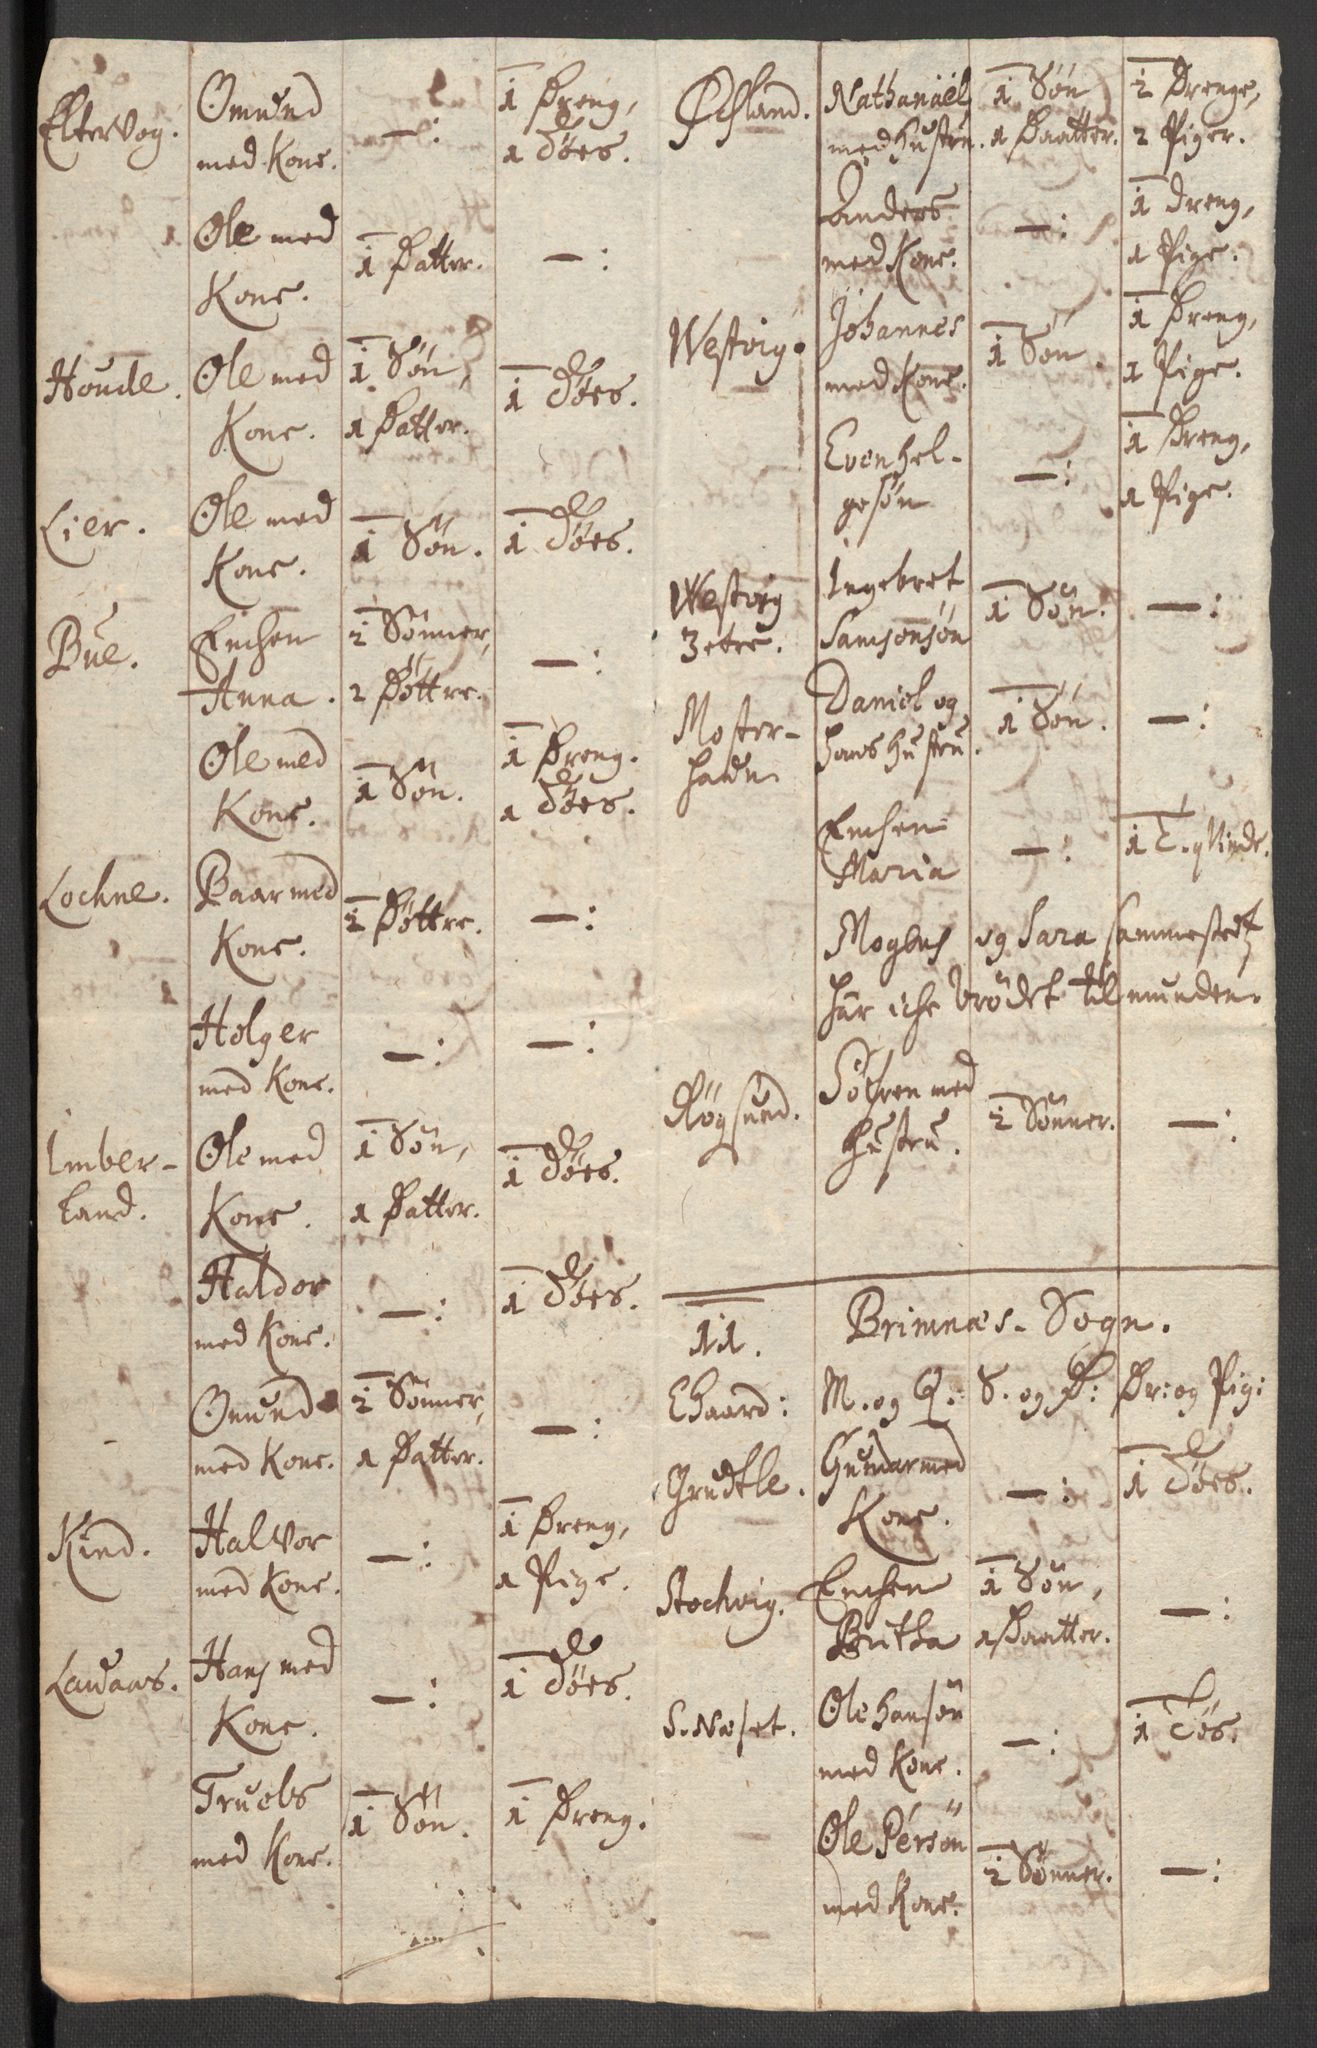 Eltervog. Omund — : 1 Dreng,
med Kone. 1 Tøes.
Ole med 1 Datter. — :
Kone.
Houde. Ole med 1 Søn, 1 Tøes.
Kone. 1 Datter.
Lier. Ole med 1 Søn. 1 Tøes.
Kone.
Bue. Enchen 2 Sønner, — :
Anna. 2 Døttre.
Ole med 1 Søn. 1 Dreng.
Kone. 1 Tøes.
Lochne. Baar med 2 Døttre. — :
Kone.
Holger — : — :
med Kone.
Imber- Ole med 1 Søn, 1 Tøes.
land. Kone. 1 Datter.
Haldor — : 1 Tøes.
med Kone.
Omund 2 Sønner, — :
med Kone. 1 Datter.
Kind. Halvor — : 1 Dreng,
med Kone. 1 Pige.
Lauaas. Hans med — : 1 Tøes.
Kone.
Truels 1 Søn. 1 Dreng.
med Kone.
Øfland. Nathanael 1 Søn 2 Drenge,
med Hustru. 1 Daatter. 2 Piger.
Anders — : 1 Dreng,
med Kone. 1 Pige.
Westvig. Johannes 1 Søn. 1 Dreng,
med Kone. 1 Pige.
Even Hel- — : 1 Dreng,
gesøn 1 Pige.
Westvig Ingebret 1 Søn. — :
Zetre. Samsonsøn
Moster- Daniel og 1 Søn. — :
hafn hans Hustru.
Enchen — : 1 T. qvinde.
Maria
Moghns og Sara sammestedtz
har iche brødet til munden.
Røgsund. Søfren med 2 Sønner. — :
Hustru.
11. Brimnæs-Sogn.
Ehaard: M. og Q: S. og D: Dr: og Pig:
Grudtle. Gunnar med — : 1 Tøes.
Kone.
Stochvig. Enchen 1 Søn, — :
Britha 1 Daatter.
S. Næset. Ole Hansøn — : 1 Tøs.
med Kone.
Ole Persøn 2 Sønner. — :
med Kone.